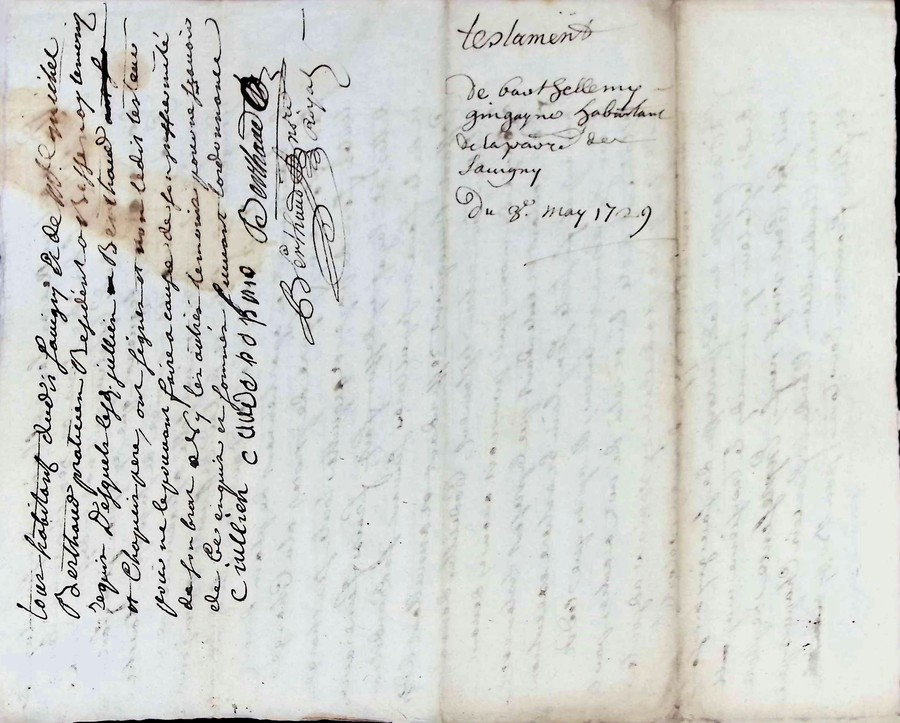 testament
de barthellemy
gingayne habittant
de la parre de
Savigny
Du 8e. may 1729
tous habitant dudit Savigny et de Michel
Berthaud praticien Resident a temoins
requis Desquels led jullien Berthaud
et Chapuis pere, ont signes et non ledit testateur
pour ne le pouvoir faire a cause de
de son bras et les autres temoins pour ne scavoir
de ce enquis et sommes suivant lordonnance
C jullien Berthaud
Berthaud Nore Royal